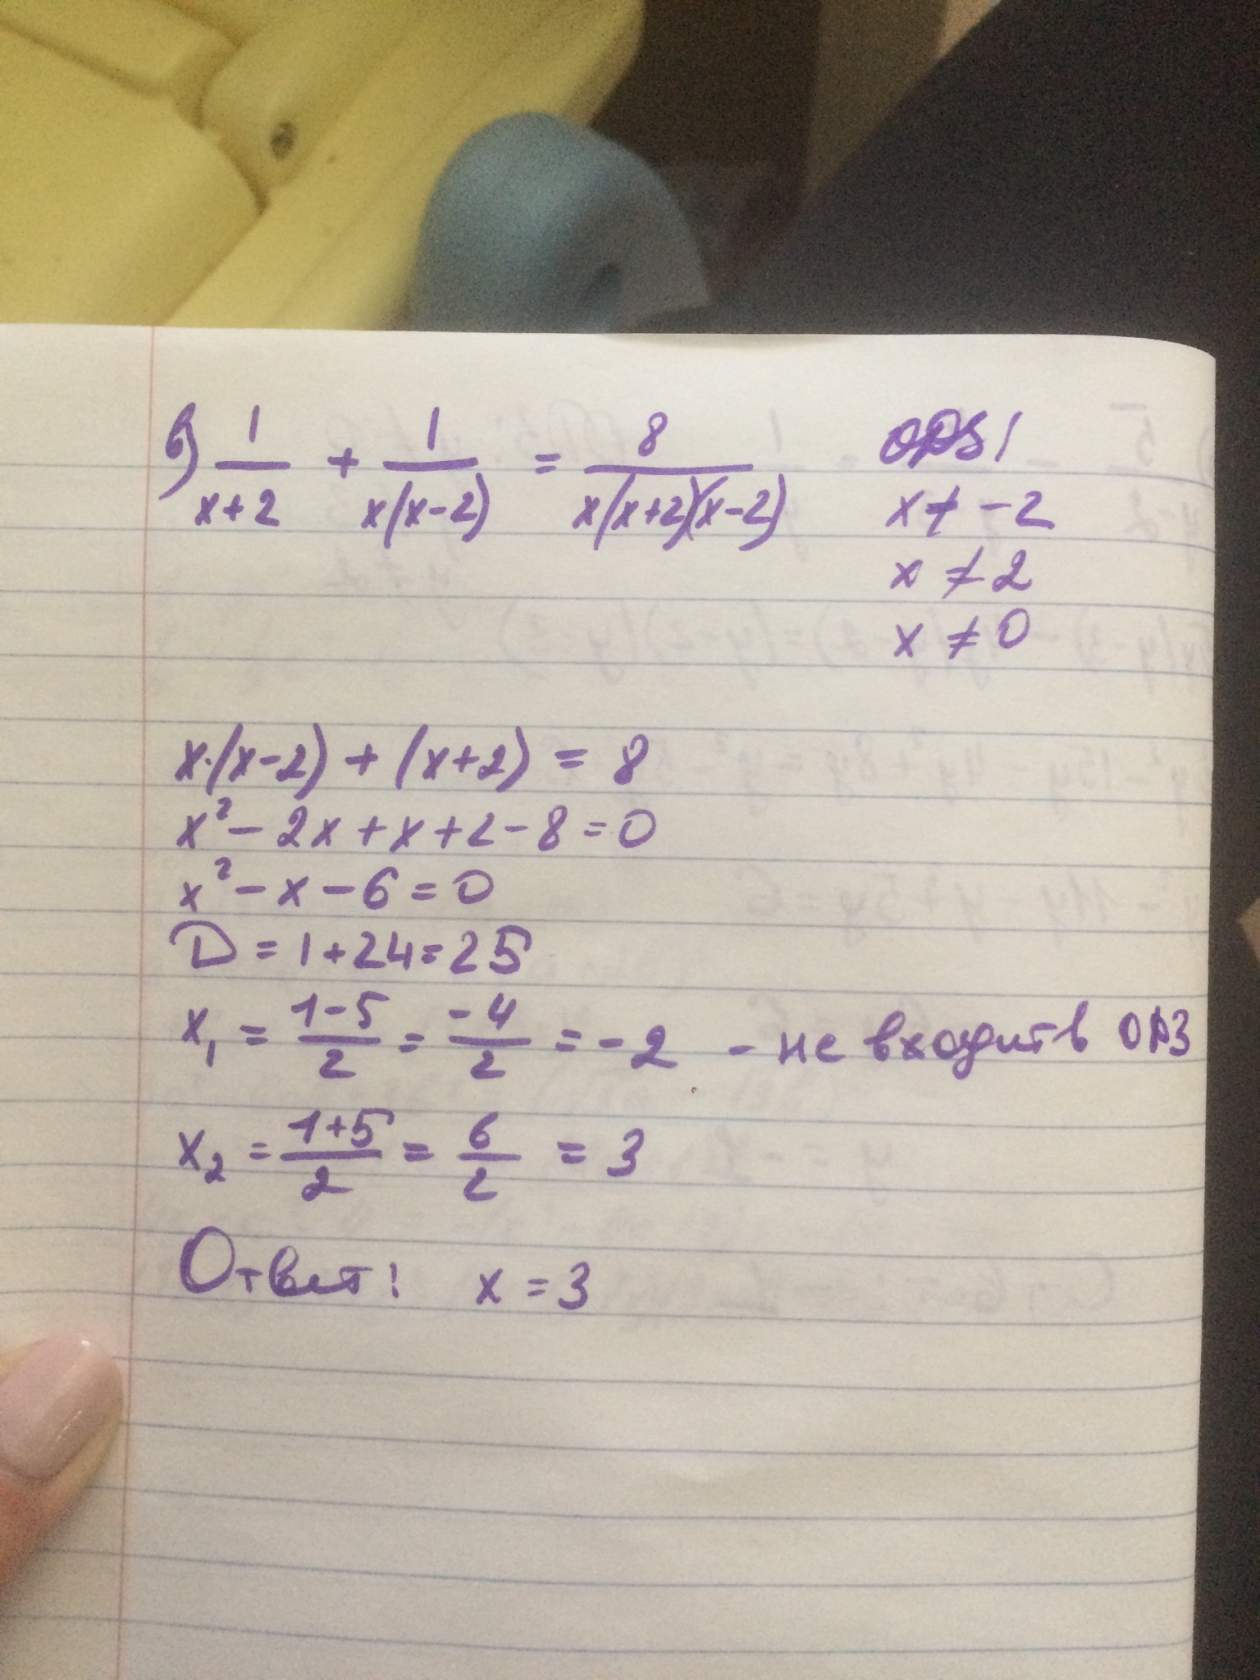 в) 1/(x+2) + 1/(x(x-2)) = 8/(x(x+2)(x-2)) ОДЗ!
x ≠ -2
x ≠ 2
x ≠ 0
x·(x-2) + (x+2) = 8
x² - 2x + x + 2 - 8 = 0
x² - x - 6 = 0
D = 1 + 24 = 25
x₁ = (1-5)/2 = -4/2 = -2 - не входить в ОДЗ
x₂ = (1+5)/2 = 6/2 = 3
Ответ! x = 3